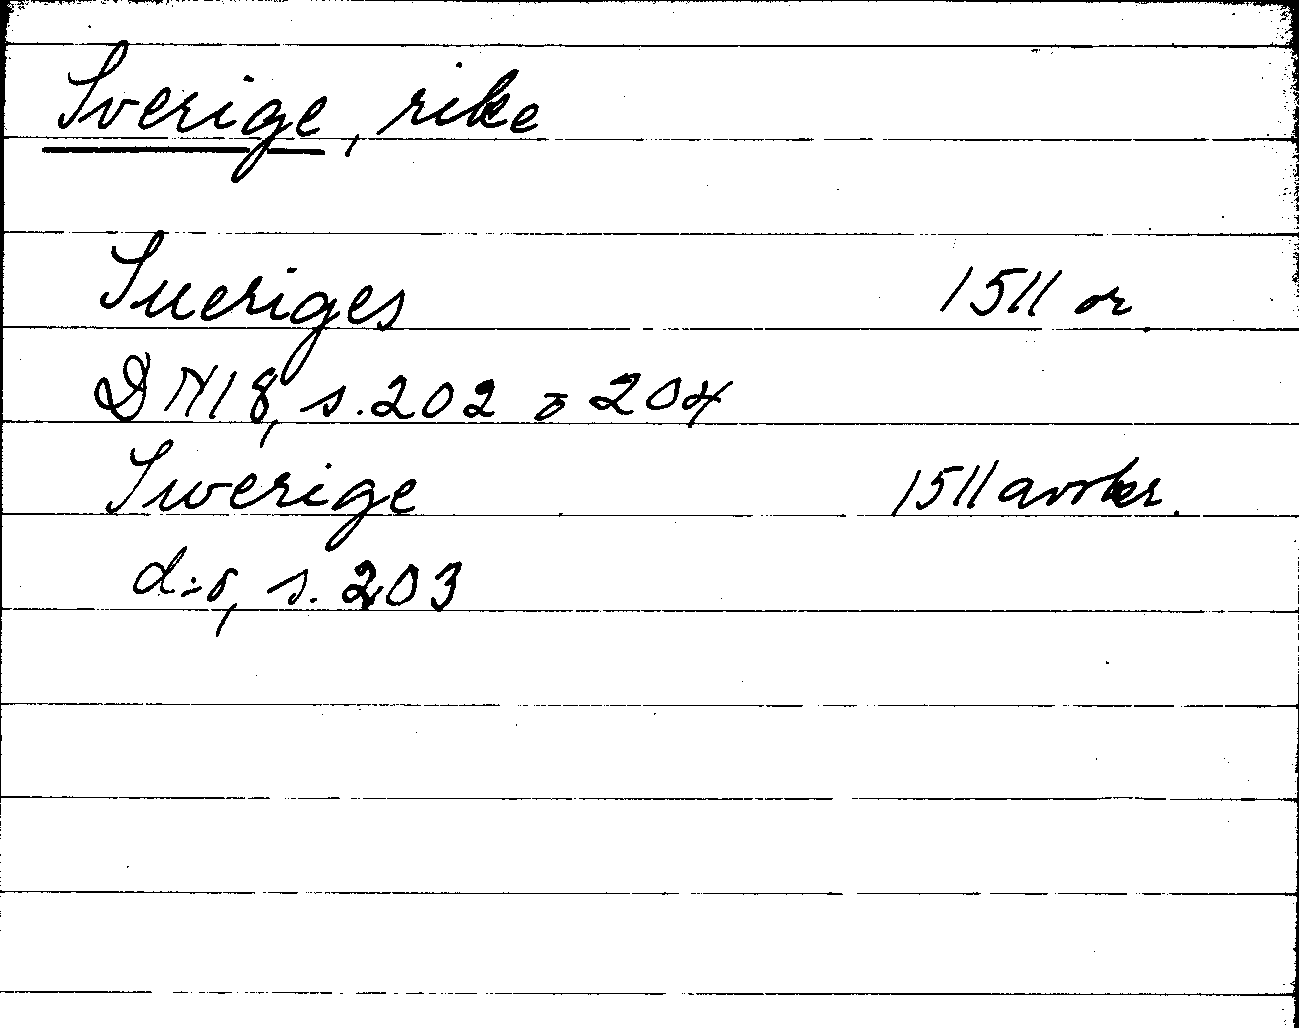 Sverige, rike
Sueriges 1511 or.
DN 18, s. 202 o 204
Swerige 1511 avskr.
d:o, s. 203